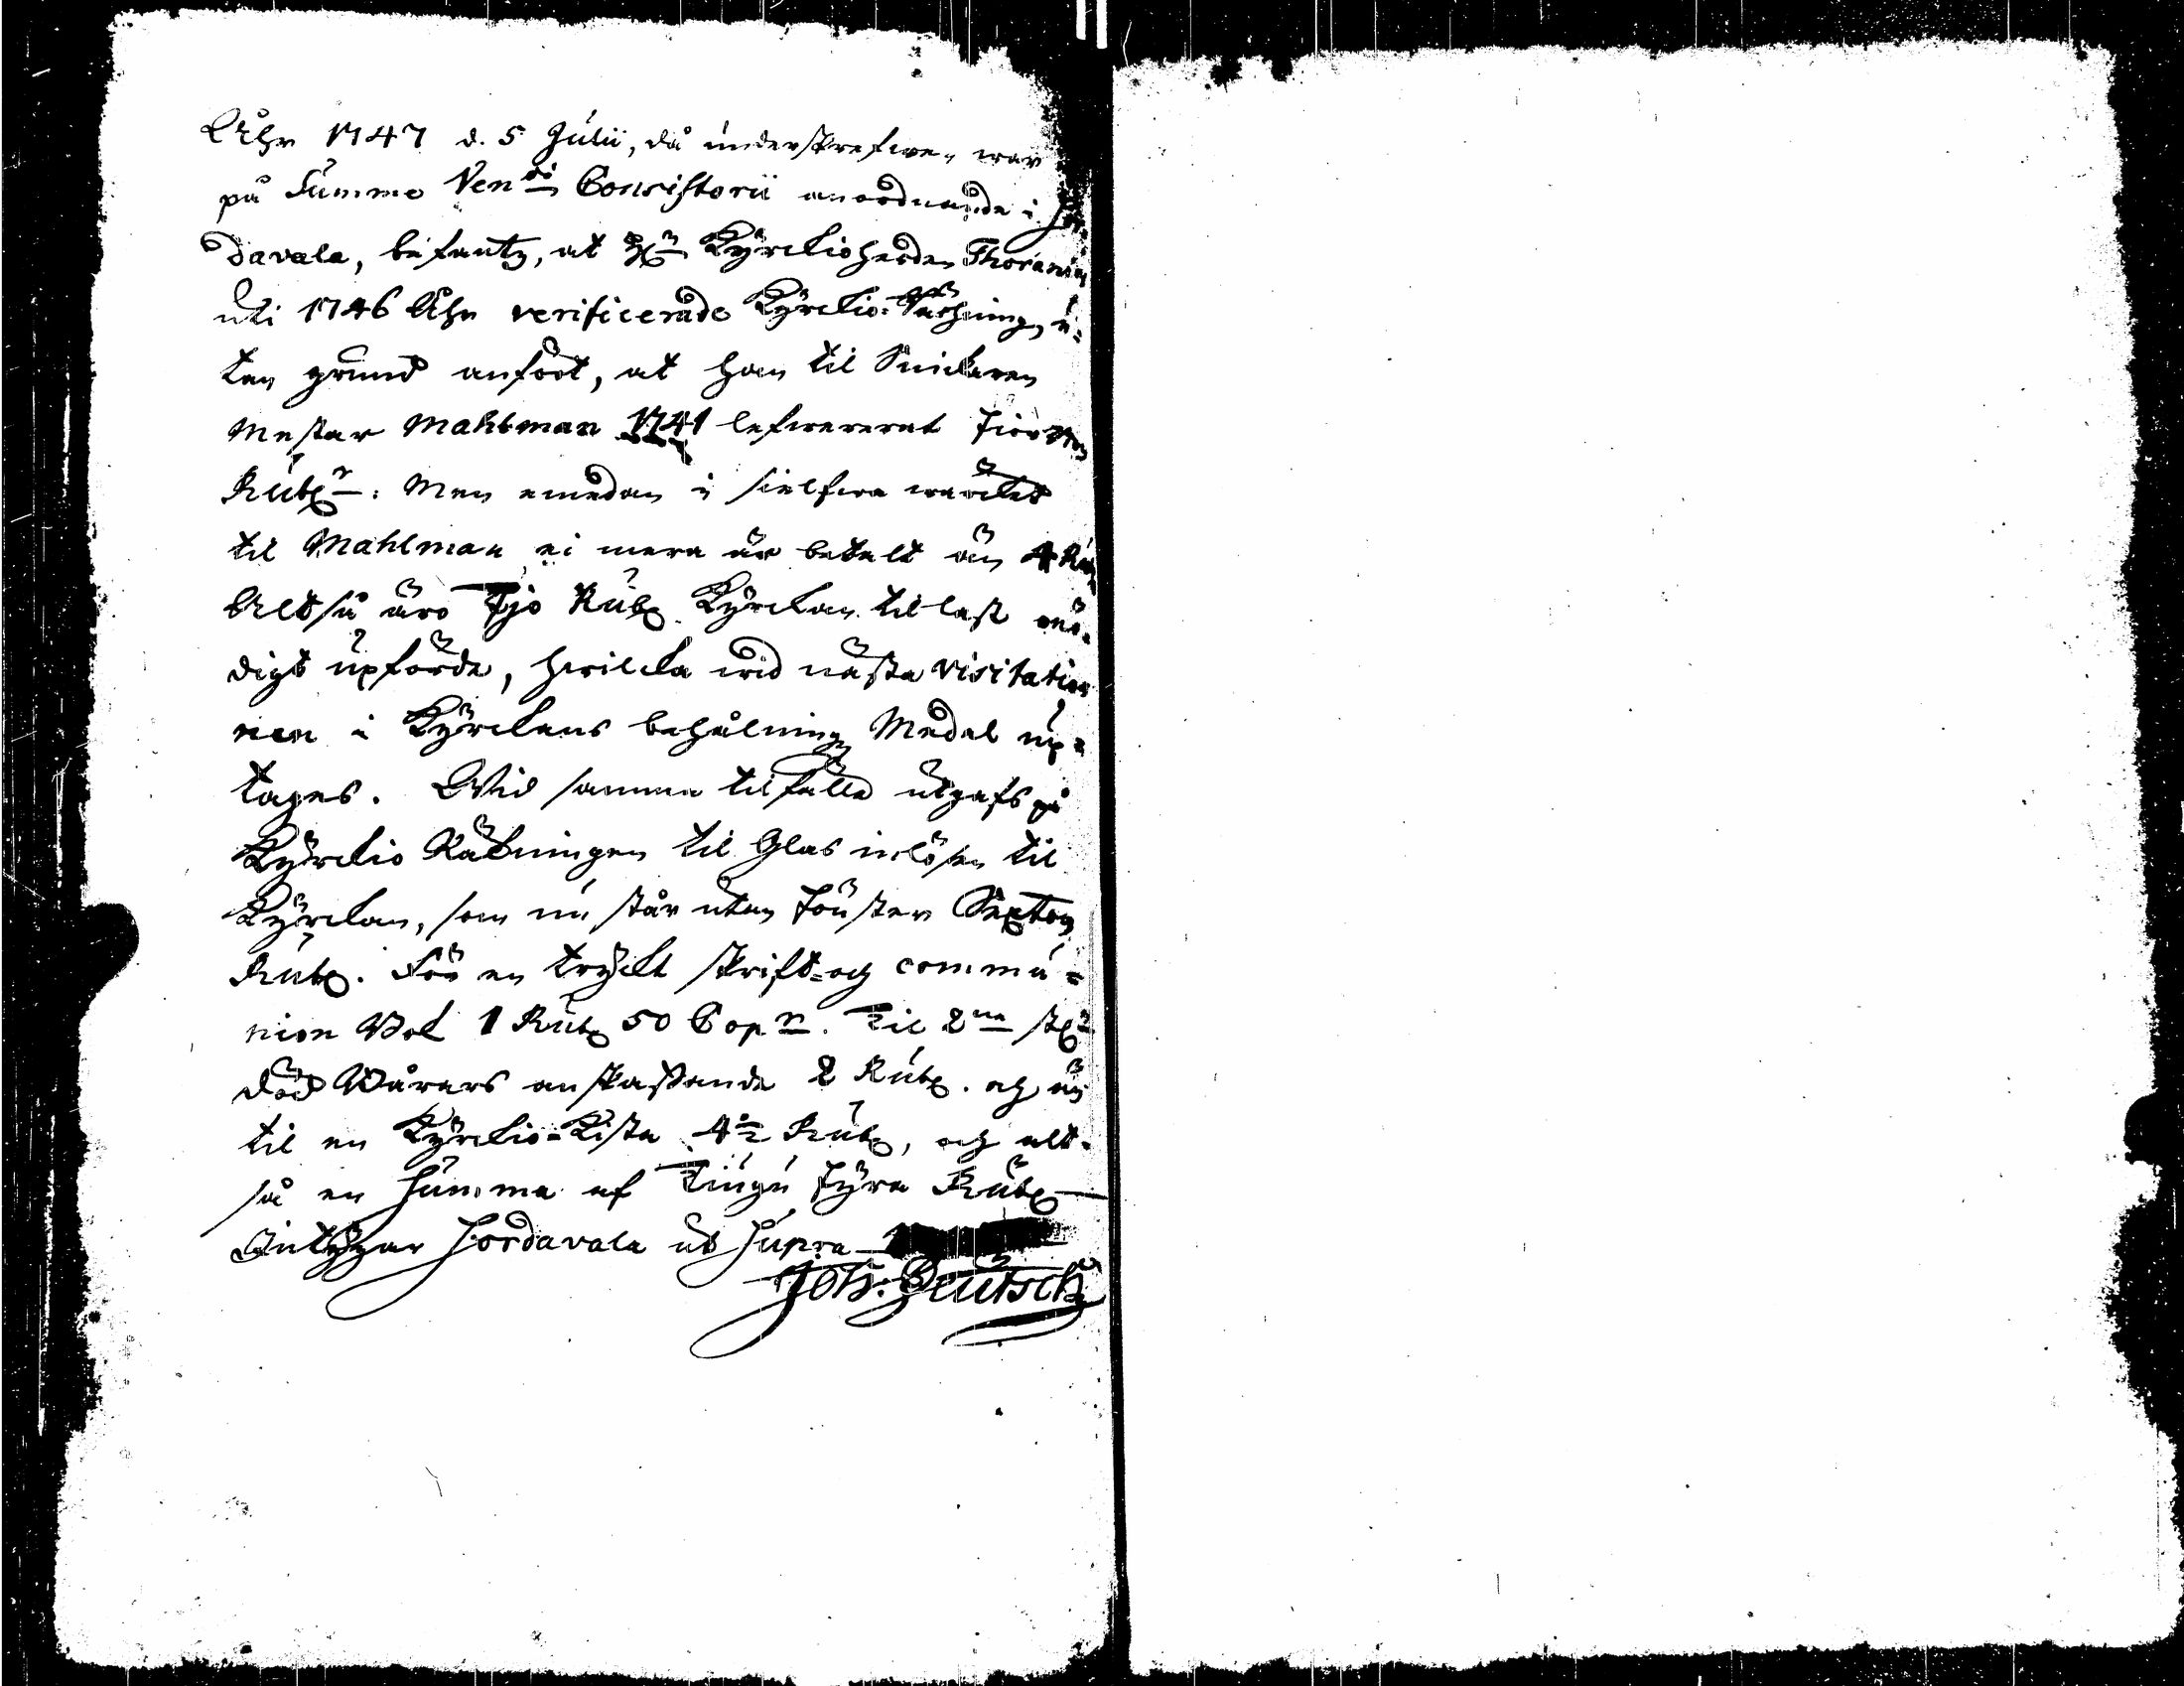 Åhr 1747 d. 5 Julii, då underskrefwen war
på Summe Ven di Consistorii anordnande i Sor-
davala, befantz, at Hn Kyrckioherden Thoranius
uti 1746 Åhr verificerade Kyrckio-Räkning, u-
tan grund anfört, at han til Snickaren
Mestar Mahlman 1741 lefwererat Fiorton
Rubr: Men emedan i sielfwa wärcket
til Mahlman ei mera är betalt än 4 Rub
Altså äro Tjo Rubr Kyrckan til last onö-
digt upförde, hwilcka wid nästa visitation
nen i Kyrckans behålning Medel up-
tages. Wid samma tilfälle utgafs på
Kyrckio Räkningen til Glas inlösen til
Kyrckan, som nu står utan Fönster Sexton
Rubr. För en tryckt skrift- och commu-
nion Bok 1 Rubr 50 Copn. Til 2ne st
död Bårars anskaffande 2 Rubr. och än
til en Kyrckio-Kista 4 Rubr, och alt-
så en Summa af Tiugu Fyra Rubr
Intygar Sordavala ut Supra
Joh: Deutsch